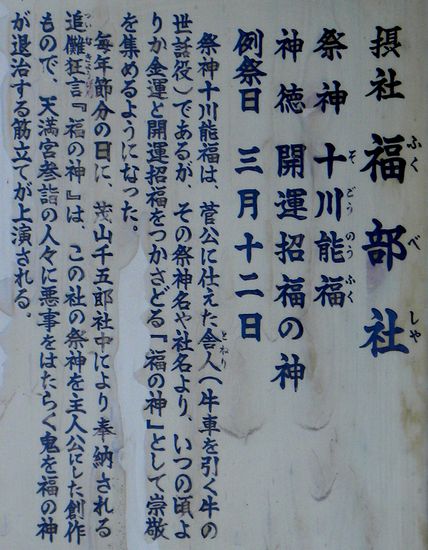 摂社 福部社
ふくべしゃ
祭神 十川能福
そごうのうふく
神徳 開運招福の神
例祭日 三月十二日
祭神十川能福は、菅公に仕えた舎人(牛車を引く牛の
とねり
世話役)であるが、その祭神名や社名より、いつの頃よ
りか金運と開運招福をつかさどる『福の神』として崇敬
を集めるようになった。
毎年節分の日に、茂山千五郎社中により奉納される
追儺狂言『福の神』は、この社の祭神を主人公にした創作
ついなきょうげん
もので、天満宮参詣の人々に悪事をはたらく鬼を福の神
が退治する筋立てが上演される。